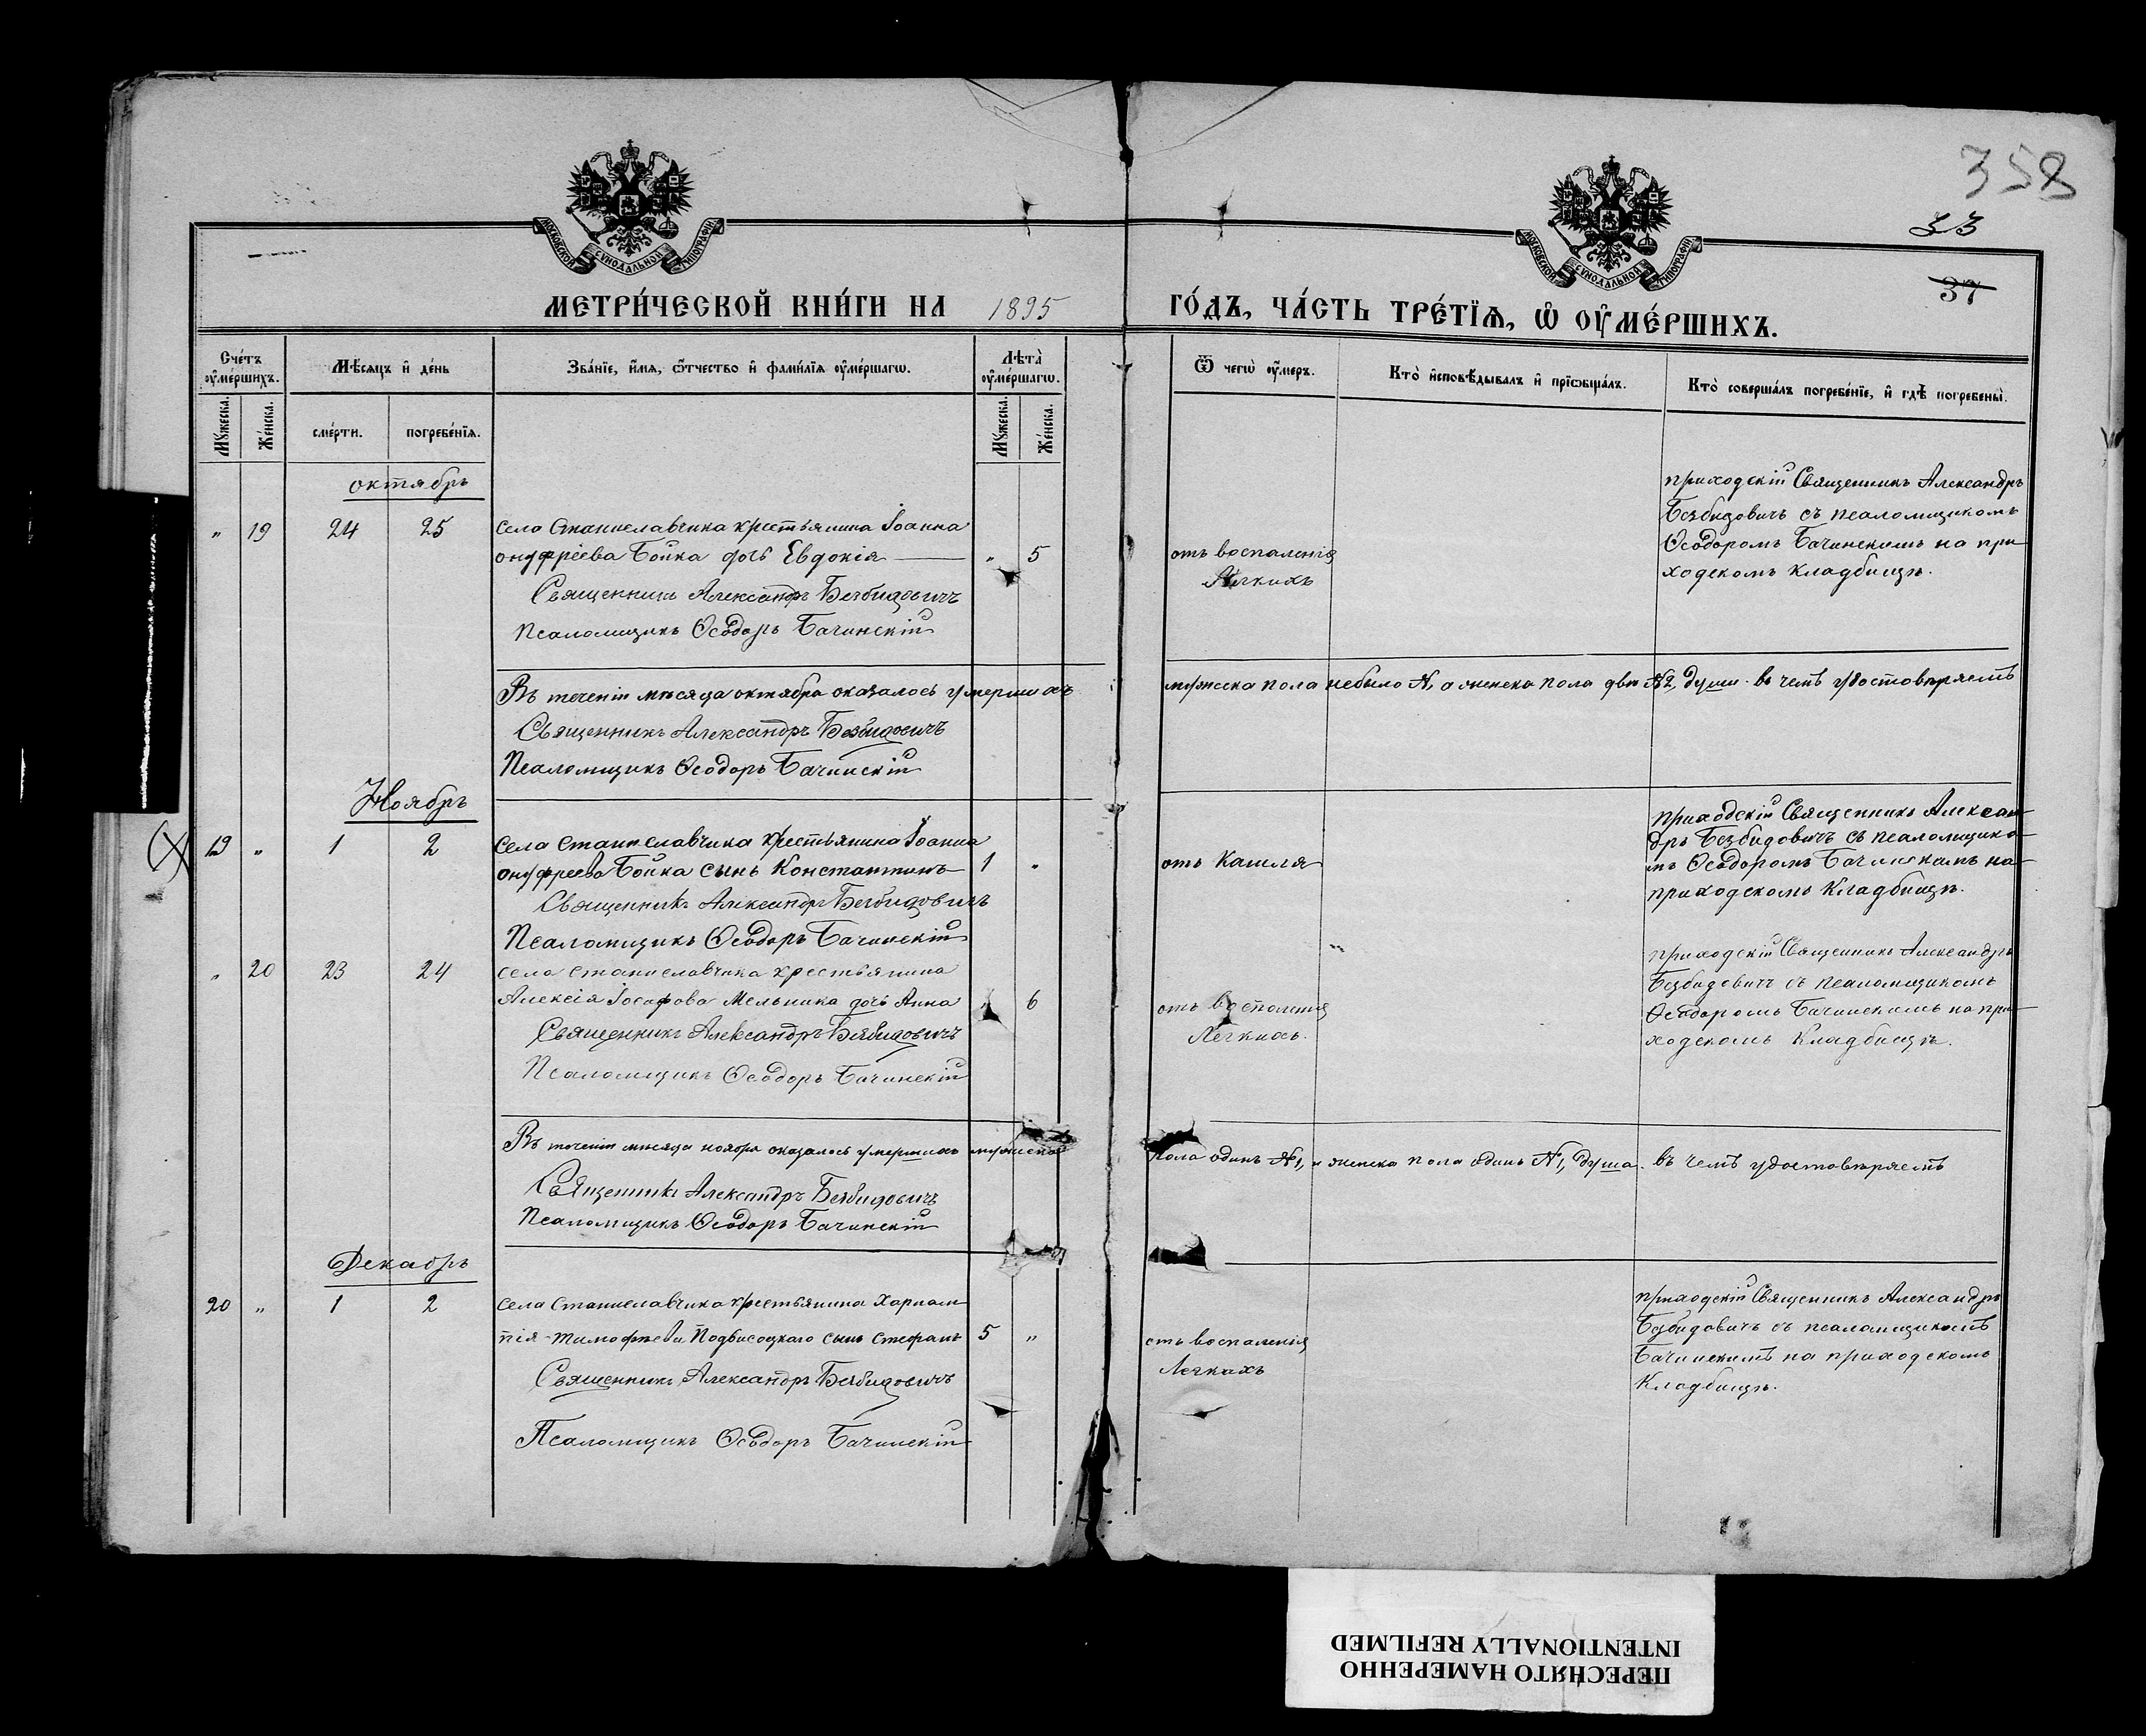 358
33
37
МОСКОВСКОЙ СѴНОДАЛЬНОЙ ТИПОГРАФІИ
МОСКОВСКОЙ СѴНОДАЛЬНОЙ ТИПОГРАФІИ
МЕТРИ́ЧЕСКОЙ КНИ́ГИ НА 1895 ГО́ДЪ, ЧА́СТЬ ТРЕ́ТЇѦ, Ѡ҆ ОУ҆МЕ́РШИХЪ.
Сче́тъ оу҆ме́ршихъ.
Мѣ́сѧцъ и҆ де́нь
Зва́нїе, и҆́мѧ, ѻ҆́тчество и҆ фами́лїѧ оу҆ме́ршагѡ.
Лѣ́та оу҆ме́ршагѡ.
Ѿ чегѡ̀ оу҆́меръ.
Кто̀ и҆сповѣ́дывалъ и҆ прїѡбща́лъ.
Кто̀ соверша́лъ погребе́нїе, и҆ гдѣ̀ погребены̀.
Мꙋ́жеска. Же́нска. сме́рти. погребе́нїѧ. Мꙋ́жеска. Же́нска.
октябрь
" 19 24 25 села Станиславчика крестьянина Іоанна
онуфріева Бойка дочь Евдокія " 5
Священникъ Александръ Безбидовичъ
Псаломщикъ Ѳеодоръ Бачинскій
отъ воспаленія
Легкихъ
приходскій Священникъ Александръ
Безбидовичъ съ псаломщикомъ
Ѳеодоромъ Бачинскимъ на при-
ходскомъ кладбищѣ.
Въ теченіи мѣсяца октября оказалось умершихъ мужеска пола небыло №, а женска пола двѣ №2, души. въ чемъ удостовѣряетъ
Священникъ Александръ Безбидовичъ
Псаломщикъ Ѳеодоръ Бачинскій
Ноябрь
19 " 1 2 села Станиславчика крестьянина Іоанна
онуфреева Бойка сынъ Константинъ 1 "
Священникъ Александръ Безбидовичъ
Псаломщикъ Ѳеодоръ Бачинскій
отъ Кашля
приходскій Священникъ Алексан-
дръ Безбидовичъ съ псаломщико-
мъ Ѳеодоромъ Бачинскимъ на
приходскомъ Кладбищѣ.
" 20 23 24 села Станиславчика крестьянина
Алексія Іосифова Мельника дочь Анна " 6
Священникъ Александръ Безбидовичъ
Псаломщикъ Ѳеодоръ Бачинскій
отъ воспаленія
Легкихъ.
приходскій Священникъ Александръ
Безбидовичъ съ псаломщикомъ
Ѳеодоромъ Бачинскимъ на при-
ходскомъ Кладбищѣ.
Въ теченіи мѣсяца ноября оказалось умершихъ мужеска пола одинъ №1, и женска пола одинъ №1, душа. въ чемъ удостовѣряетъ
Священникъ Александръ Безбидовичъ
Псаломщикъ Ѳеодоръ Бачинскій
Декабрь
20 " 1 2 села Станиславчика крестьянина Харлам-
пія Тимофѣева Подвисоцкаго сынъ Стефанъ 5 "
Священникъ Александръ Безбидовичъ
Псаломщикъ Ѳеодоръ Бачинскій
отъ воспаленія
Легкихъ
приходскій Священникъ Александръ
Безбидовичъ съ псаломщикомъ
Бачинскимъ на приходскомъ
Кладбищѣ.
ПЕРЕСНЯТО НАМЕРЕННО
INTENTIONALLY REFILMED